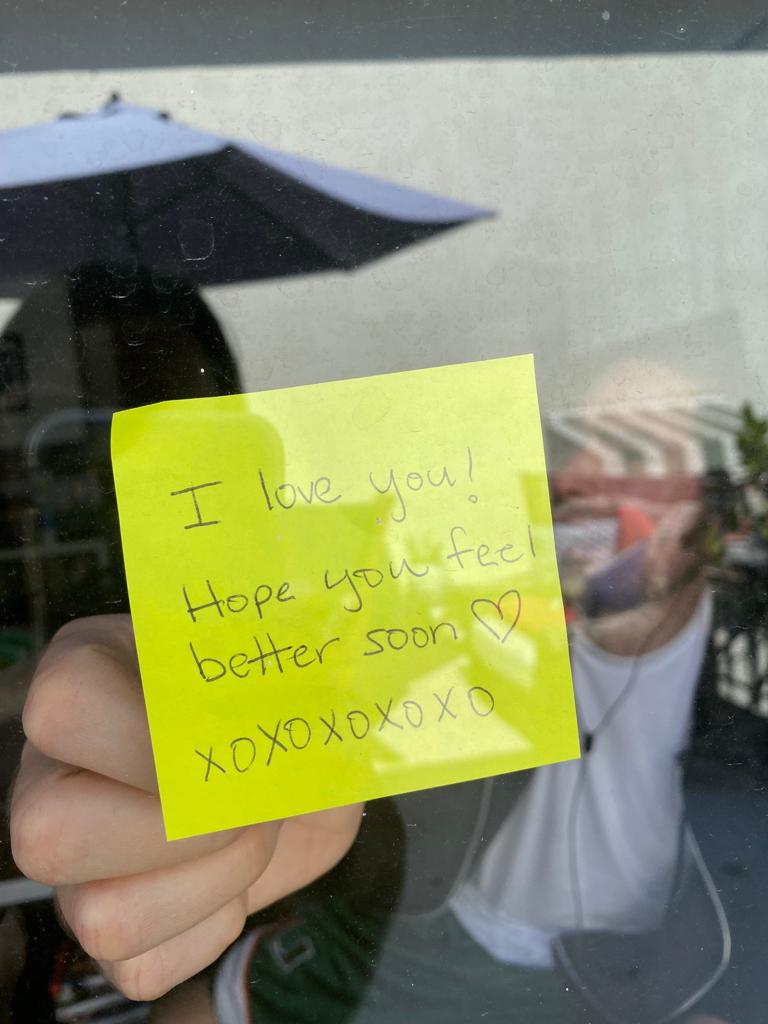 I love you!
Hope you feel
better soon ♡
XOXOXOXOXO